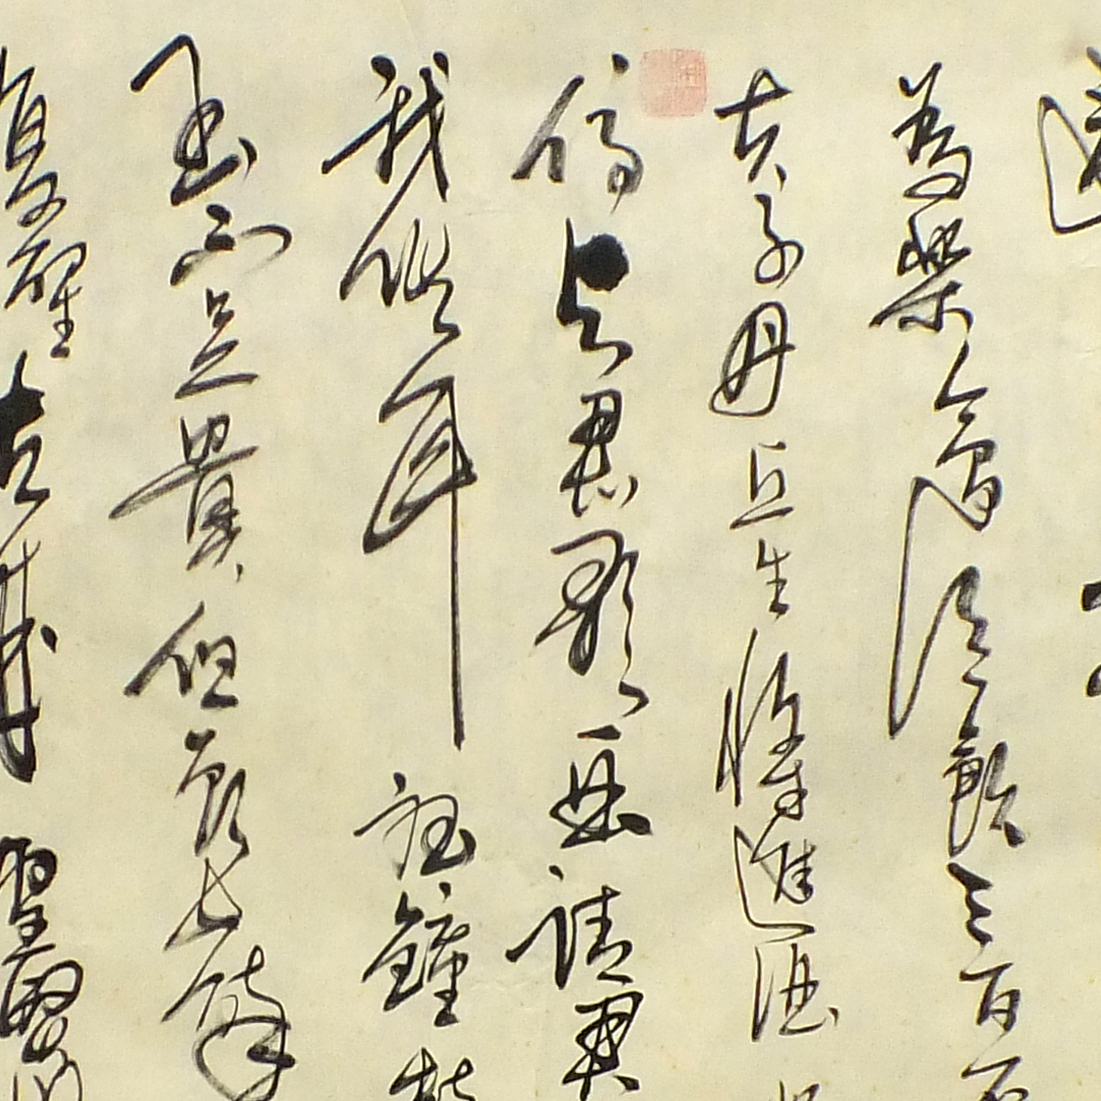 為樂會須飲三百
夫子丹丘生將進酒
停與君歌一曲請君
我耳聽鐘鼓
玉不足貴但願長醉
復醒古來聖賢